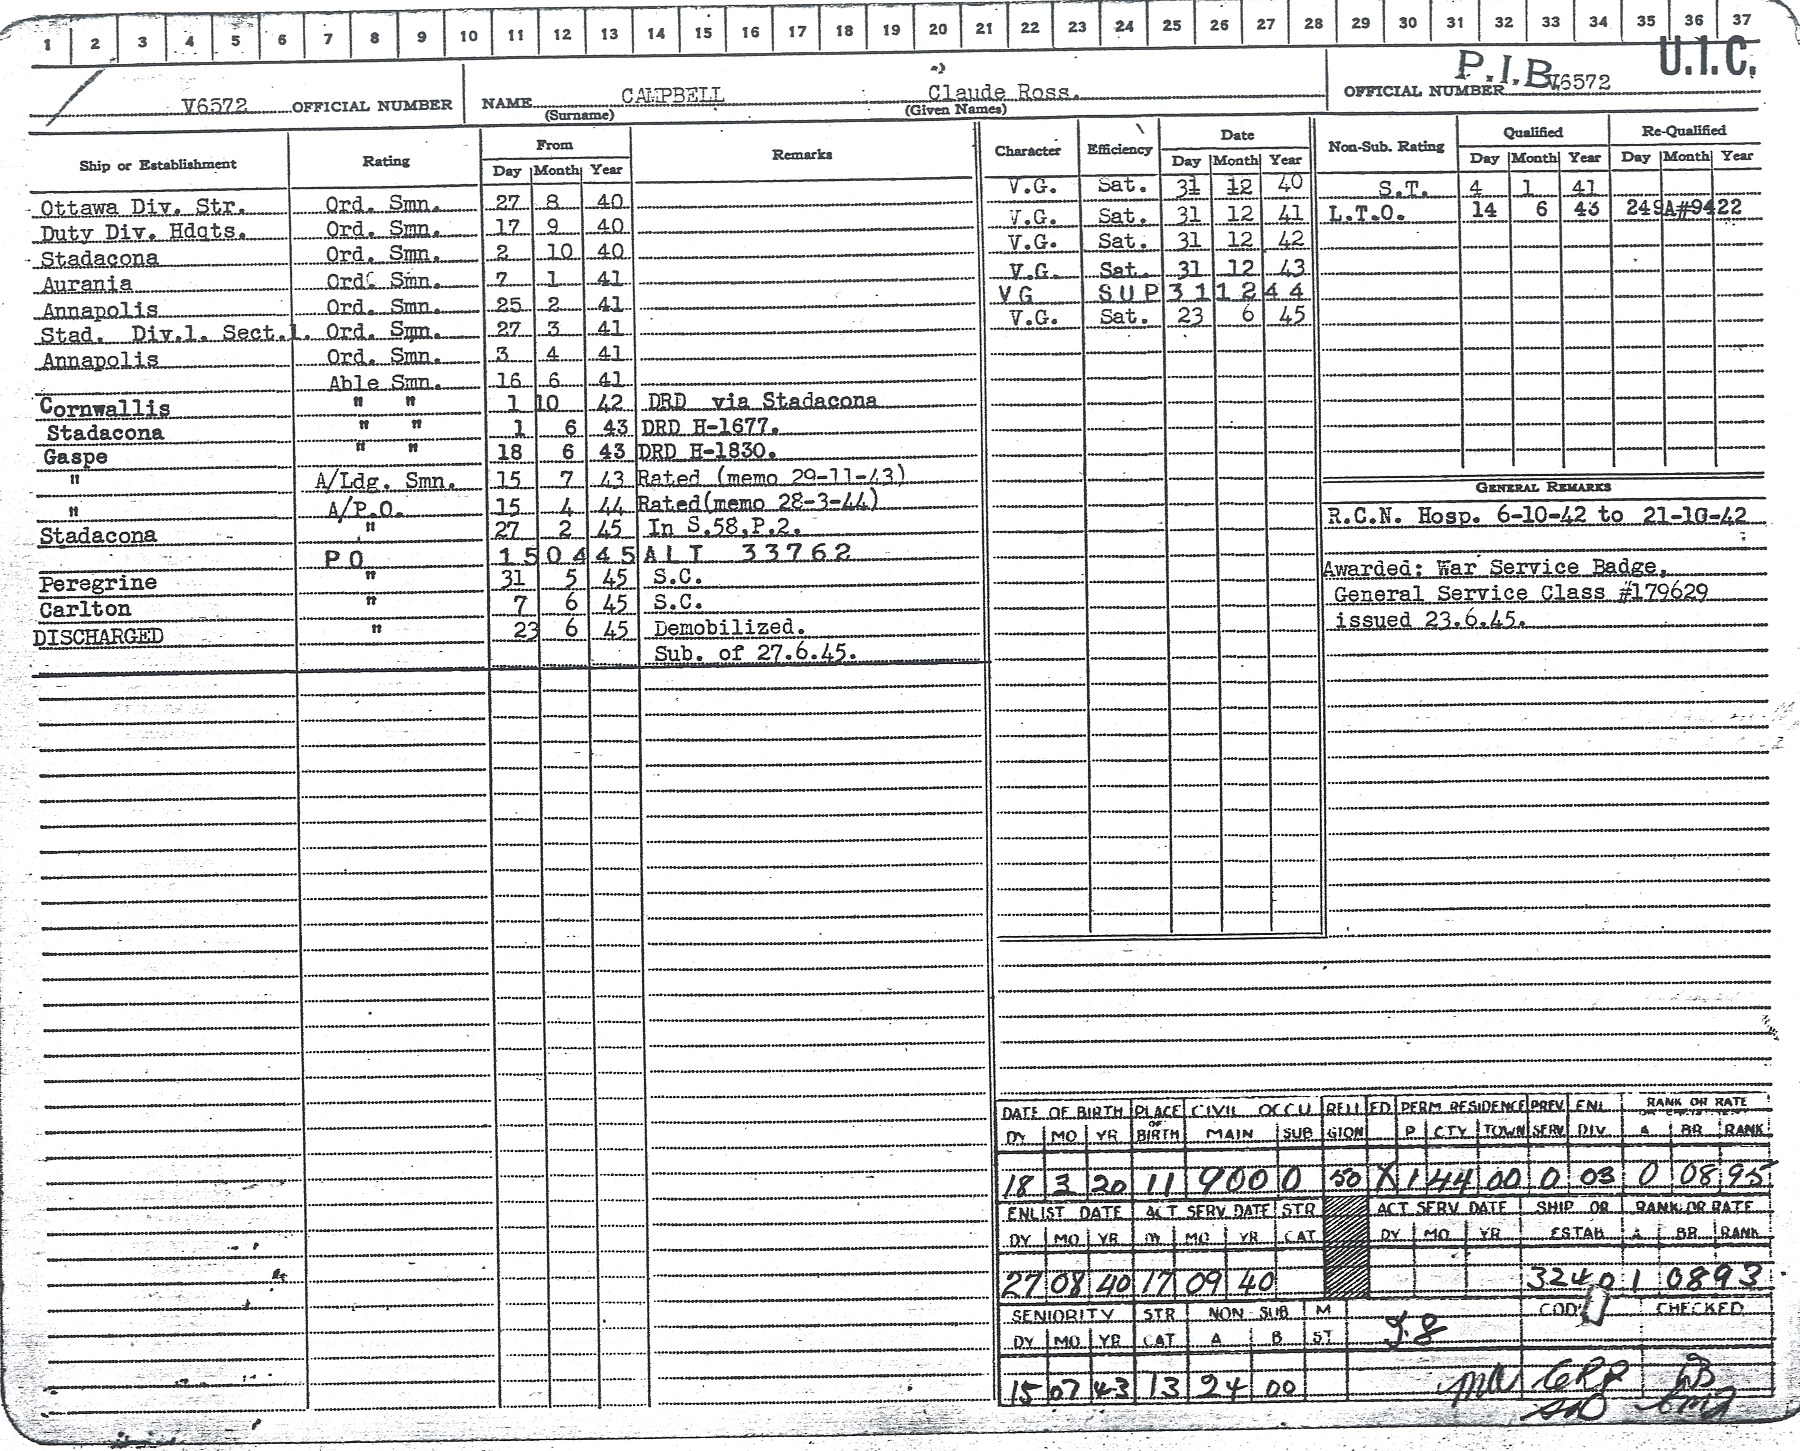 1 2 3 4 5 6 7 8 9 10 11 12 13 14 15 16 17 18 19 20 21 22 23 24 25 26 27 28 29 30 31 32 33 34 35 36 37
P.I.B. U.I.C.
V6572 OFFICIAL NUMBER NAME CAMPBELL Claude Ross. OFFICIAL NUMBER V6572
(Surname) (Given Names)
Ship or Establishment Rating From Remarks
Day Month Year
Ottawa Div. Str. Ord. Smn. 27 8 40
Duty Div. Hdqts. Ord. Smn. 17 9 40
Stadacona Ord. Smn. 2 10 40
Aurania Ord. Smn. 7 1 41
Annapolis Ord. Smn. 25 2 41
Stad. Div.1. Sect.1. Ord. Smn. 27 3 41
Annapolis Ord. Smn. 3 4 41
Able Smn. 16 6 41
Cornwallis " " 1 10 42 DRD via Stadacona
Stadacona " " 1 6 43 DRD H-1677.
Gaspe " " 18 6 43 DRD H-1830.
" A/Ldg. Smn. 15 7 43 Rated (memo 29-11-43)
" A/P.O. 15 4 44 Rated(memo 28-3-44)
Stadacona " 27 2 45 In S.58,P.2.
PO 15 04 45 ALT 33762
Peregrine " 31 5 45 S.C.
Carlton " 7 6 45 S.C.
DISCHARGED " 23 6 45 Demobilized.
Sub. of 27.6.45.
Character Efficiency Date
Day Month Year
V.G. Sat. 31 12 40
V.G. Sat. 31 12 41
V.G. Sat. 31 12 42
V.G. Sat. 31 12 43
VG SUP 31 12 44
V.G. Sat. 23 6 45
Non-Sub. Rating Qualified Re-Qualified
Day Month Year Day Month Year
S.T. 4 1 41
L.T.O. 14 6 43 249A#9422
GENERAL REMARKS
R.C.N. Hosp. 6-10-42 to 21-10-42
Awarded: War Service Badge,
General Service Class #179629
issued 23.6.45.
DATE OF BIRTH PLACE OF BIRTH CIVIL OCCU RELIGION ED PERM RESIDENCE PREV SERV ENL DIV. RANK OR RATE
DY MO YR MAIN SUB P CTY TOWN A BR. RANK
18 3 20 11 900 0 50 X 1 44 00 0 03 0 08 95
ENLIST DATE ACT SERV DATE STR CAT ACT SERV DATE SHIP OR ESTAB RANK OR RATE
DY MO YR DY MO YR DY MO YR A BR. RANK
27 08 40 17 09 40 3240 1 08 93
SENIORITY STR CAT NON-SUB M ST CODE CHECKED
DY MO YR A B
15 07 43 13 24 00